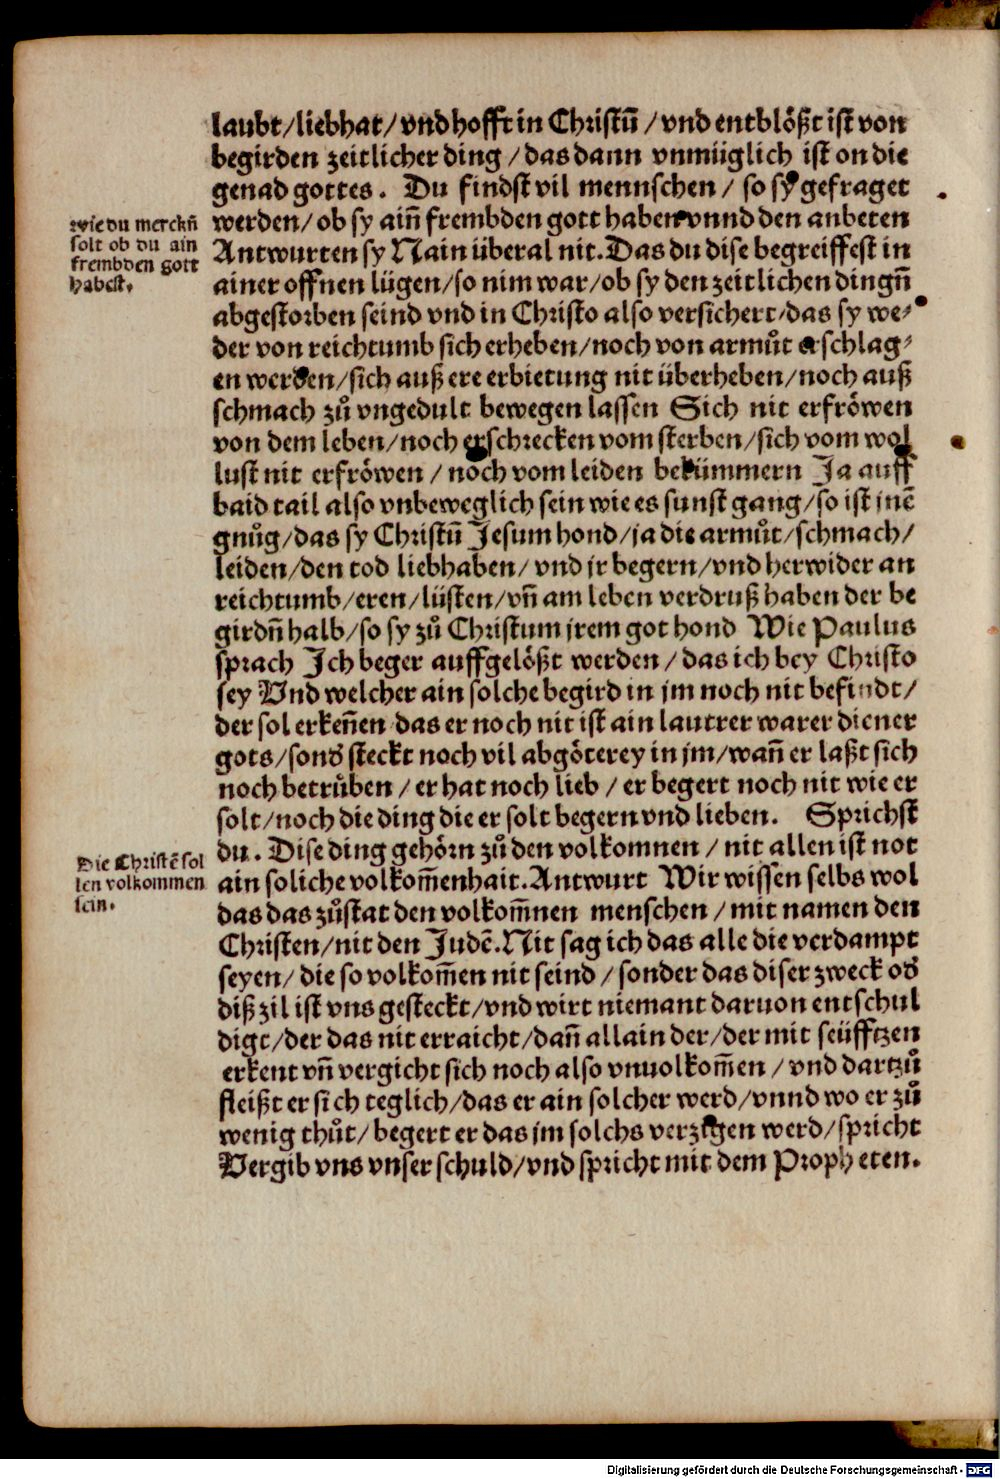 laubt/liebhat/vnd hofft in Christū/vnd entblößt ist von
begirden zeitlicher ding/das dann vnmüglich ist on die
genad gottes. Du findst vil mennschen/ so sy gefraget
werden/ ob sy aiñ frembden gott haben vnnd den anbeten
Antwurten sy Nain überal nit. Das du dise begreiffest in
ainer offnen lügen/so nim war/ob sy den zeitlichen dingñ
abgestorben seind vnd in Christo also versichert/das sy we⸗
der von reichtumb sich erheben/noch von armůt erschlag⸗
en werden/sich auß ere erbietung nit überheben/noch auß
schmach zů vngedult bewegen lassen Sich nit erfröwen
von dem leben/noch erschrecken vom sterben/sich vom wol
lust nit erfröwen/noch vom leiden bekümmern Ja auff
baid tail also vnbeweglich sein wie es sunst gang/so ist jnē
gnůg/das sy Christū Jesum hond/ja die armůt/schmach/
leiden/den tod liebhaben/vnd jr begern/vnd herwider an
reichtumb/eren/lüsten/vñ am leben verdruß haben der be
girdñ halb/so sy zů Christum jrem got hond Wie Paulus
sprach Ich beger auffgelößt werden/das ich bey Christo
sey Vnd welcher ain solche begird in jm noch nit befindt/
der sol erkeñen das er noch nit ist ain lautrer warer diener
gots/sond' steckt noch vil abgöterey in jm/wañ er laßt sich
noch betrüben/er hat noch lieb/er begert noch nit wie er
solt/noch die ding die er solt begern vnd lieben. Sprichst
du. Dise ding gehörn zů den volkomnen/nit allen ist not
ain soliche volkom̄enhait. Antwurt Wir wissen selbs wol
das das zůstat den volkom̄nen menschen/mit namen den
Christen/nit den Judē. Nit sag ich das alle die verdampt
seyen/die so volkom̄en nit seind/sonder das diser zweck od'
diß zil ist vns gesteckt/vnd wirt niemant daruon entschul
digt/der das nit erraicht/dañ allain der/der mit seüfftzen
erkent vñ vergicht sich noch also vnuolkom̄en/vnd dartzů
fleißt er sich teglich/das er ain solcher werd/vnnd wo er zů
wenig thůt/begert er das jm solchs verzigen werd/spricht
Vergib vns vnser schuld/vnd spricht mit dem Propheten.
wie du merckñ
solt ob du ain
frembden gott
habest.
Die Christē sol
len volkommen
sein.
Digitalisierung gefördert durch die Deutsche Forschungsgemeinschaft - DFG